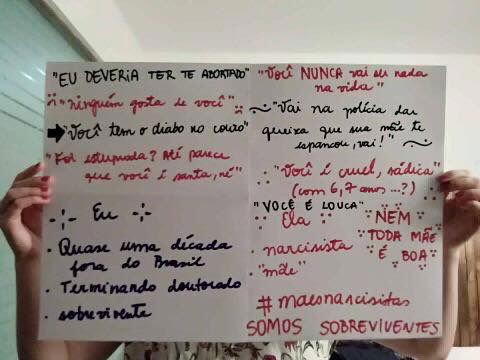 "EU DEVERIA TER TE ABORTADO"
"ninguém gosta de você"
"Você tem o diabo no couro"
"Foi estuprada? Até parece
que você é santa, né"
Eu
. Quase uma década
fora do Brasil
. Terminando doutorado
. sobrevivente
"Você NUNCA vai ser nada
na vida"
"Vai na polícia dar
queixa que sua mãe te
espancou, vai!"
"Você é cruel, sádica"
(com 6, 7 anos...?)
"VOCÊ É LOUCA"
Ela
narcisista
"mãe"
NEM
TODA MÃE
É BOA
#maesnarcisistas
SOMOS SOBREVIVENTES